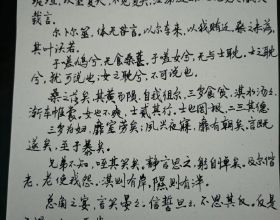 载言。
尔卜尔筮，体无咎言，以尔车来，以我贿迁，桑之未落，
其叶沃若。
于嗟鸠兮，无食桑葚，于嗟女兮，无与士耽，士之耽
兮，犹可说也，女之耽兮，不可说也。
桑之落矣，其黄而陨，自我徂尔，三岁食贫，淇水汤汤，
渐车帷裳，女也不爽，士贰其行，士也罔极，二三其德。
三岁为妇，靡室劳矣；夙兴夜寐，靡有朝矣，言既
遂矣，至于暴矣。
兄弟不知，咥其笑矣，静言思之，躬自悼矣，及尔偕
老，老使我怨，淇则有岸，隰则有泮。
总角之宴，言笑晏晏，信誓旦旦，不思其反，反是